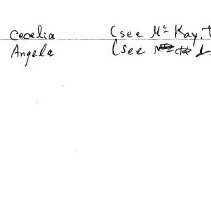 Cecelia (see Mc Kay, T
Angela (see